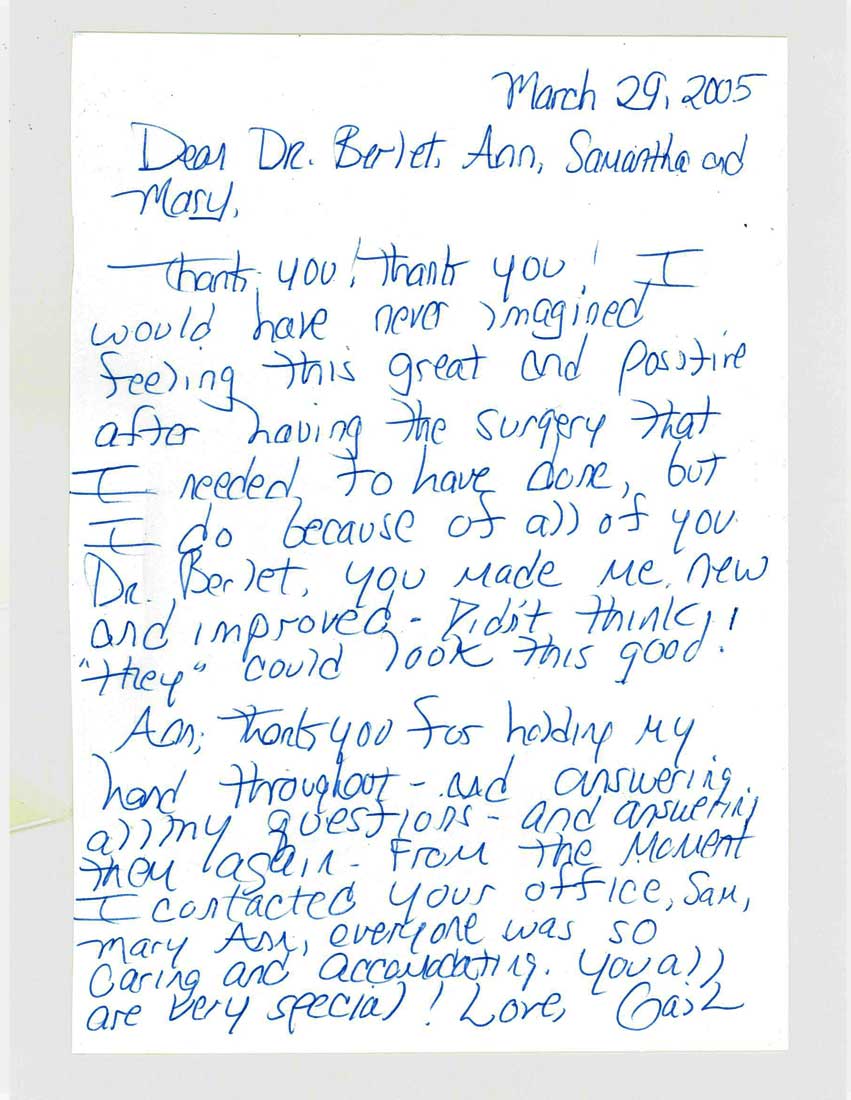 March 29, 2005
Dear Dr. Berlet, Ann, Samantha and
Mary,
Thank you! Thank you! I
would have never imagined
feeling this great and positive
after having the surgery that
I needed to have done, but
I do because of all of you
Dr. Berlet, you made me new
and improved - Didn't think
"they" could look this good!
Ann, thank you for holding my
hand throughout - and answering
all my questions - and answering
them again - From the moment
I contacted your office, Sam,
Mary Ann, everyone was so
caring and accomodating. You all
are very special! Love, Gail